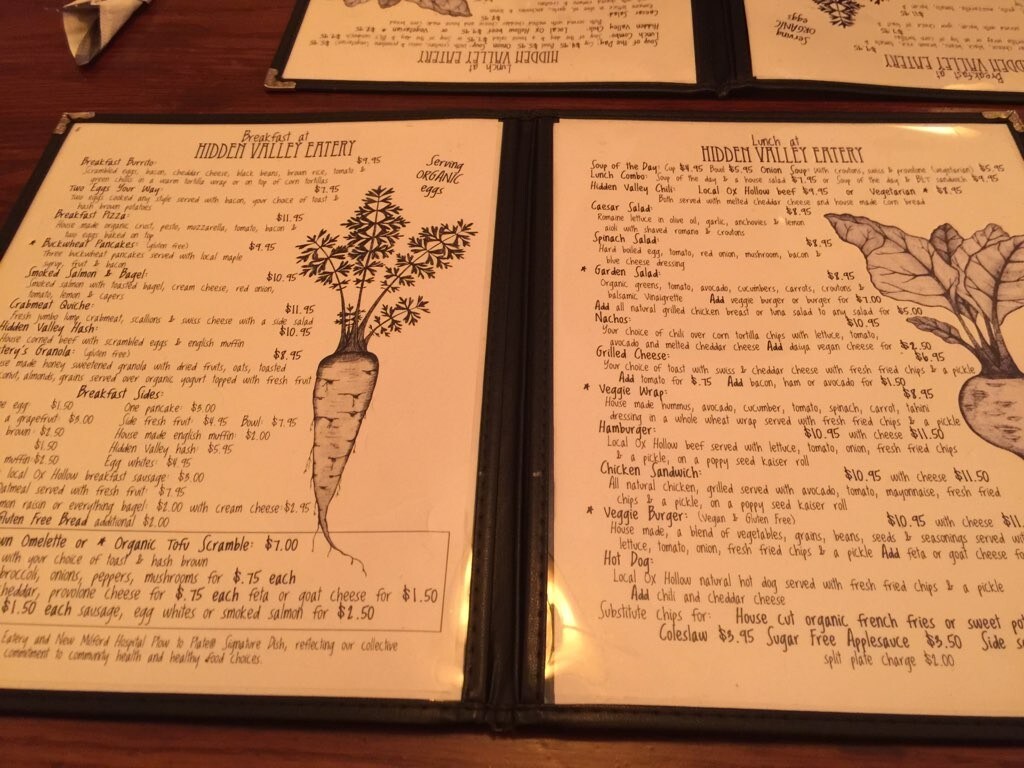 Breakfast at
HIDDEN VALLEY EATERY
Serving
ORGANIC
eggs
Breakfast Burrito: $9.95
Scrambled eggs, bacon, cheddar cheese, black beans, brown rice, tomato &
green chilis in a warm tortilla wrap or on top of corn tortillas
Two Eggs Your Way: $7.95
Two eggs cooked any style served with bacon, your choice of toast &
hash brown potatoes
Breakfast Pizza: $11.95
House made organic crust, pesto, mozzarella, tomato, bacon &
two eggs baked on top
* Buckwheat Pancakes: (gluten free) $9.95
Three buckwheat pancakes served with local maple
syrup, fruit & bacon
Smoked Salmon & Bagel: $10.95
Smoked salmon with toasted bagel, cream cheese, red onion,
tomato, lemon & capers
Crabmeat Quiche: $11.95
Fresh jumbo lump crabmeat, scallions & swiss cheese with a side salad
Hidden Valley Hash: $10.95
House corned beef with scrambled eggs & english muffin
Granola: (gluten free) $8.95
made honey sweetened granola with dried fruits, oats, toasted
almonds, grains served over organic yogurt topped with fresh fruit
Breakfast Sides:
egg: $1.50 One pancake: $3.00
a grapefruit: $3.00 Side fresh fruit: $4.95 Bowl: $7.95
brown: $2.50 House made english muffin: $2.00
$1.50 Hidden Valley hash: $5.95
muffin: $2.50 Egg whites: $4.95
local Ox Hollow breakfast sausage: $3.00
Oatmeal served with fresh fruit: $7.95
raisin or everything bagel: $2.00 with cream cheese: $2.95
Gluten Free Bread additional $2.00
Omelette or * Organic Tofu Scramble: $7.00
with your choice of toast & hash brown
broccoli, onions, peppers, mushrooms for $.75 each
cheddar, provolone cheese for $.75 each feta or goat cheese for $1.50
$1.50 each sausage, egg whites or smoked salmon for $2.50
Eatery and New Milford Hospital Plow to Plate® Signature Dish, reflecting our collective
commitment to community health and healthy food choices.
Lunch at
HIDDEN VALLEY EATERY
Soup of the Day: Cup $4.95 Bowl $5.95 Onion Soup: with croutons, swiss & provolone (vegetarian) $5.95
Lunch Combo: Soup of the day & a house salad $7.95 or Soup of the day & BLT sandwich $9.95
Hidden Valley Chili: Local Ox Hollow beef $9.95 or Vegetarian * $8.95
Both served with melted cheddar cheese and house made corn bread
Caesar Salad: $8.95
Romaine lettuce in olive oil, garlic, anchovies & lemon
aioli with shaved romano & croutons
Spinach Salad: $8.95
Hard boiled egg, tomato, red onion, mushroom, bacon &
blue cheese dressing
* Garden Salad: $8.95
Organic greens, tomato, avocado, cucumbers, carrots, croutons &
balsamic vinaigrette Add veggie burger or burger for $7.00
Add all natural grilled chicken breast or tuna salad to any salad for $5.00
Nachos: $10.95
Your choice of chili over corn tortilla chips with lettuce, tomato,
avocado and melted cheddar cheese Add daiya vegan cheese for $2.50
Grilled Cheese: $6.95
Your choice of toast with swiss & cheddar cheese with fresh fried chips & a pickle
Add tomato for $.75 Add bacon, ham or avocado for $1.50
* Veggie Wrap: $8.95
House made hummus, avocado, cucumber, tomato, spinach, carrot, tahini
dressing in a whole wheat wrap served with fresh fried chips & a pickle
Hamburger: $10.95 with cheese $11.50
Local Ox Hollow beef served with lettuce, tomato, onion, fresh fried chips
& a pickle, on a poppy seed kaiser roll
Chicken Sandwich: $10.95 with cheese $11.50
All natural chicken, grilled served with avocado, tomato, mayonnaise, fresh fried
chips & a pickle, on a poppy seed kaiser roll
* Veggie Burger: (Vegan & Gluten Free) $10.95 with cheese $11
House made, a blend of vegetables, grains, beans, seeds & seasonings served with
lettuce, tomato, onion, fresh fried chips & a pickle Add feta or goat cheese for
Hot Dog:
Local Ox Hollow natural hot dog served with fresh fried chips & a pickle
Add chili and cheddar cheese
Substitute chips for: House cut organic french fries or sweet
Coleslaw $3.95 Sugar Free Applesauce $3.50 Side
split plate charge $2.00
Lunch at
HIDDEN VALLEY EATERY
Breakfast at
HIDDEN VALLEY EATERY
Serving
ORGANIC
eggs